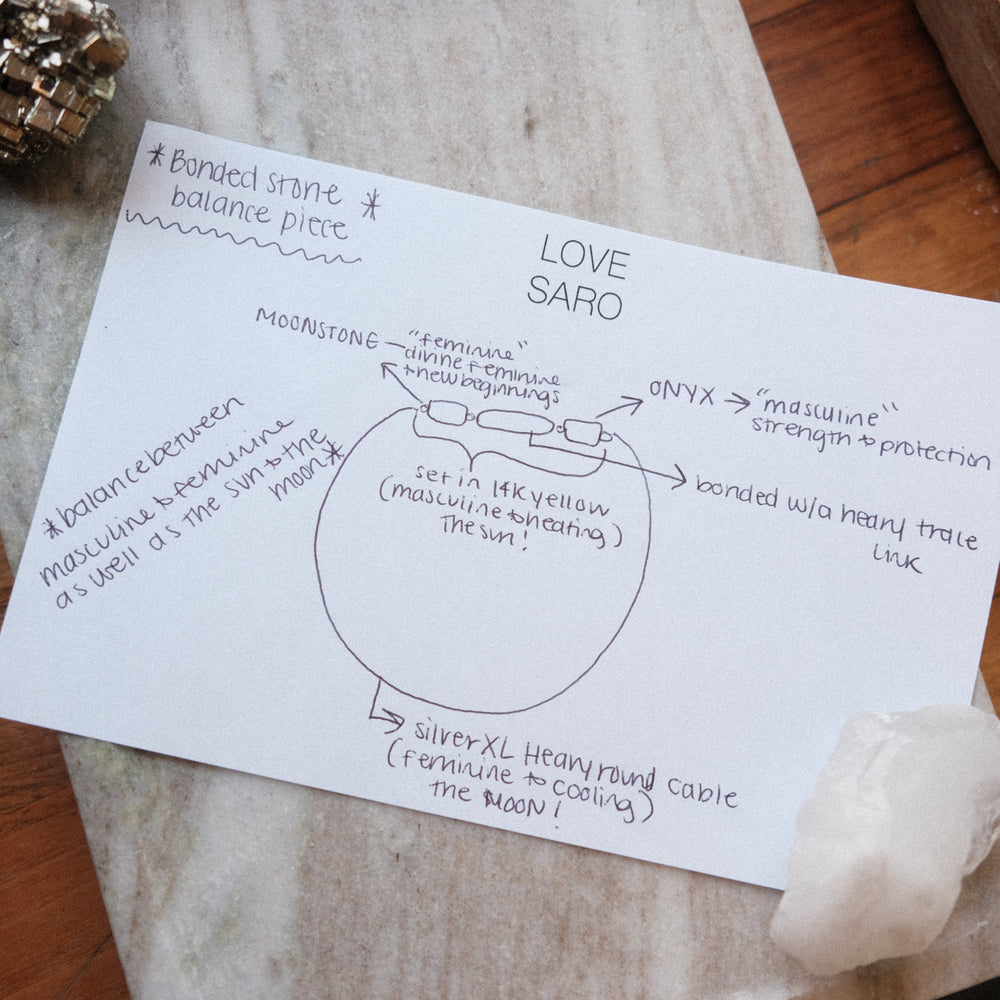 *Bonded stone *
balance piece
LOVE
SARO
MOONSTONE — "feminine"
divine feminine
& new beginnings
ONYX → "masculine"
strength & protection
set in 14K yellow
(masculine & heating)
The sun!
bonded w/a heavy trace
link
*balance between
masculine & feminine
as well as the sun & the
moon*
silver XL Heavy round cable
(feminine & cooling)
the MOON!